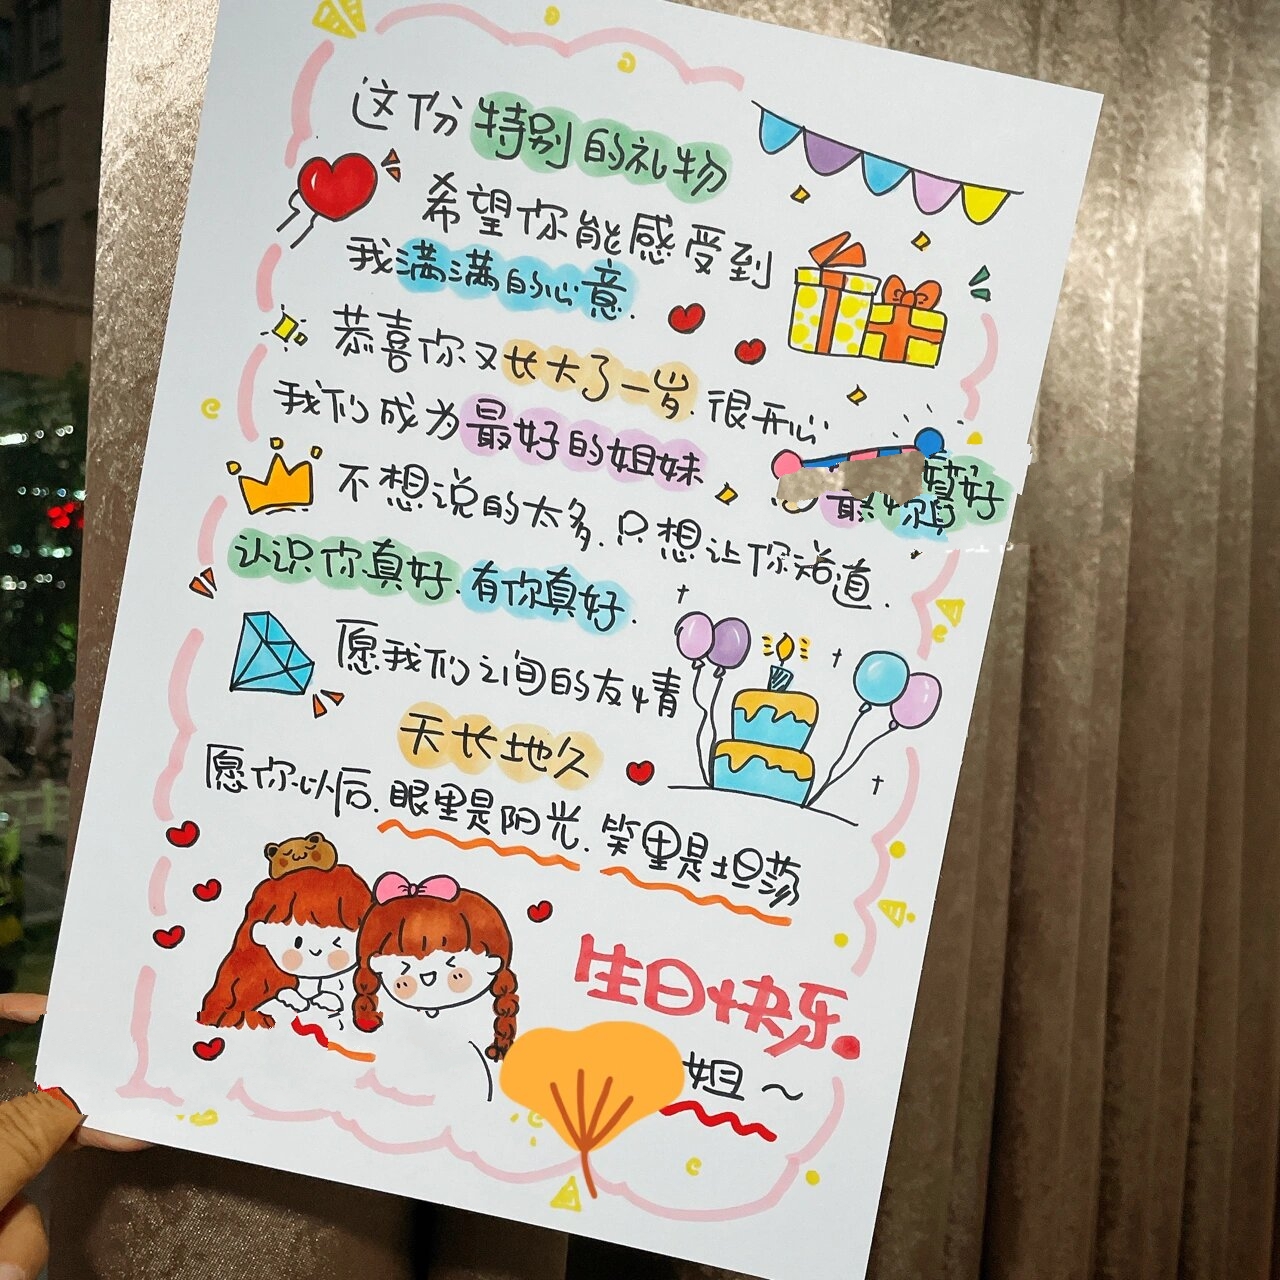 这份特别的礼物
希望你能感受到
我满满的心意.
恭喜你又长大了一岁.很开心
我们成为最好的姐妹
不想说的太多.只想让你知道.
认识你真好.有你真好.
愿我们之间的友情
天长地久
愿你以后.眼里是阳光.笑里是坦荡
生日快乐.
姐～